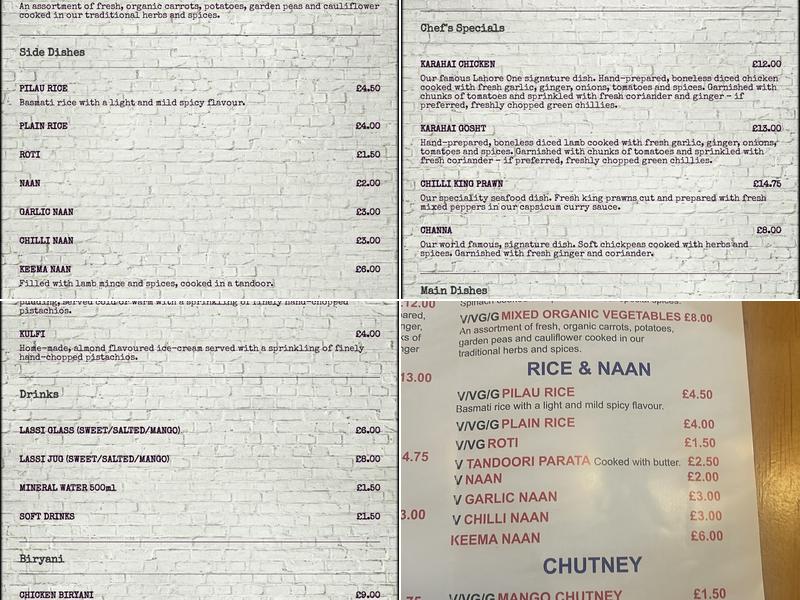 An assortment of fresh, organic carrots, potatoes, garden peas and cauliflower
cooked in our traditional herbs and spices.
Side Dishes
PILAU RICE £4.50
Basmati rice with a light and mild spicy flavour.
PLAIN RICE £4.00
ROTI £1.50
NAAN £2.00
GARLIC NAAN £3.00
CHILLI NAAN £3.00
KEEMA NAAN £6.00
Filled with lamb mince and spices, cooked in a tandoor.
Chef's Specials
KARAHAI CHICKEN £12.00
Our famous Lahore One signature dish. Hand-prepared, boneless diced chicken
cooked with fresh garlic, ginger, onions, tomatoes and spices. Garnished with
chunks of tomatoes and sprinkled with fresh coriander and ginger – if
preferred, freshly chopped green chillies.
KARAHI GOSHT £13.00
Hand-prepared, boneless diced lamb cooked with fresh garlic, ginger, onions,
tomatoes and spices. Garnished with chunks of tomatoes and sprinkled with
fresh coriander – if preferred, freshly chopped green chillies.
CHILLI KING PRAWN £14.75
Our speciality seafood dish. Fresh king prawns cut and prepared with fresh
mixed peppers in our capsicum curry sauce.
CHANNA £8.00
Our world famous, signature dish. Soft chickpeas cooked with herbs and
spices. Garnished with fresh ginger and coriander.
Main Dishes
pudding, served cold or warm with a sprinkling of finely hand-chopped
pistachios.
KULFI £4.00
Home-made, almond flavoured ice-cream served with a sprinkling of finely
hand-chopped pistachios.
Drinks
LASSI GLASS (SWEET/SALTED/MANGO) £6.00
LASSI JUG (SWEET/SALTED/MANGO) £8.00
MINERAL WATER 500ml £1.50
SOFT DRINKS £1.50
Biryani
CHICKEN BIRYANI £9.00
12.00
V/VG/G MIXED ORGANIC VEGETABLES £8.00
An assortment of fresh, organic carrots, potatoes,
garden peas and cauliflower cooked in our
traditional herbs and spices.
13.00
RICE & NAAN
V/VG/G PILAU RICE £4.50
Basmati rice with a light and mild spicy flavour.
V/VG/G PLAIN RICE £4.00
V/VG ROTI £1.50
4.75
V TANDOORI PARATA Cooked with butter. £2.50
V NAAN £2.00
V GARLIC NAAN £3.00
3.00
V CHILLI NAAN £3.00
KEEMA NAAN £6.00
CHUTNEY
V/VG/G MANGO CHUTNEY £1.50